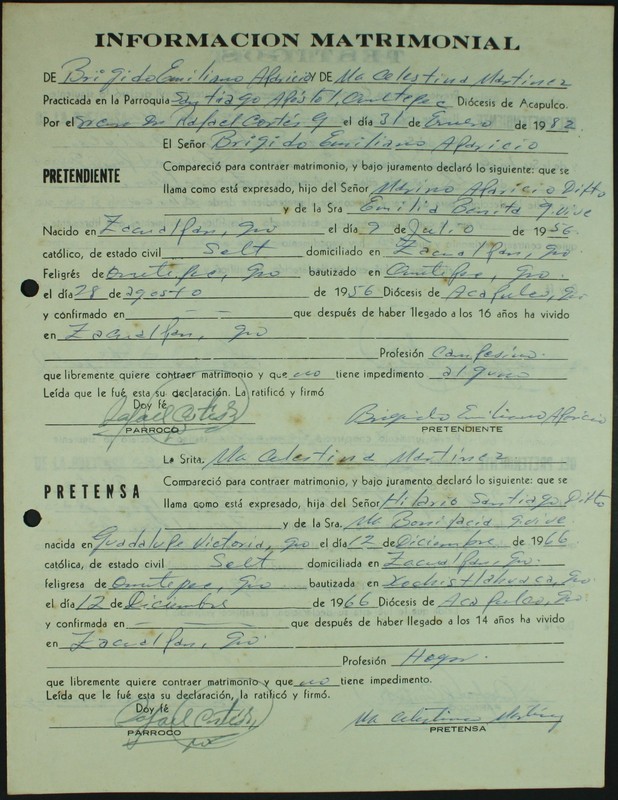 INFORMACION MATRIMONIAL
DE Brigido Emiliano Aparicio Y DE Ma Celestina Martinez
Practicada en la Parroquia Santiago Apóstol, Ometepec Diócesis de Acapulco.
Por el Dn Rafael Cortés G el día 31 de Enero de 1982
El Señor Brigido Emiliano Aparicio
PRETENDIENTE
Compareció para contraer matrimonio, y bajo juramento declaró lo siguiente: que se
llama como está expresado, hijo del Señor Marino Aparicio Difto
y de la Sra Emilia Benita q. vive
Nacido en Zacualpan, Gro el día 9 de Julio de 1956
católico, de estado civil Solt domiciliado en Zacualpan, Gro.
Feligrés de Ometepec, Gro bautizado en Ometepec, Gro.
el día 28 de agosto de 1956 Diócesis de Acapulco, Gro
y confirmado en — — que después de haber llegado a los 16 años ha vivido
en Zacualpan, Gro
Profesión Campesino.
que libremente quiere contraer matrimonio y que no tiene impedimento alguno
Leída que le fué esta su declaración. La ratificó y firmó
Doy fé
Rafael Cortés G Brigido Emiliano Aparicio
PARROCO PRETENDIENTE
La Srita. Ma Celestina Martinez
PRETENSA
Compareció para contraer matrimonio, y bajo juramento declaró lo siguiente: que se
llama como está expresado, hija del Señor Hilario Santiago Difto
y de la Sra. Ma Bonifacia q. vive
nacida en Guadalupe Victoria, Gro el día 12 de Diciembre de 1966
católica, de estado civil Solt domiciliada en Zacualpan, Gro.
feligresa de Ometepec, Gro bautizada en Xochistlahuaca, Gro
el día 12 de Diciembre de 1966 Diócesis de Acapulco, Gro.
y confirmada en — — que después de haber llegado a los 14 años ha vivido
en Zacualpan, Gro
Profesión Hogar.
que libremente quiere contraer matrimonio y que no tiene impedimento.
Leída que le fué esta su declaración, la ratificó y firmó.
Doy fé
Rafael Cortés G Ma Celestina Martinez
PARROCO PRETENSA